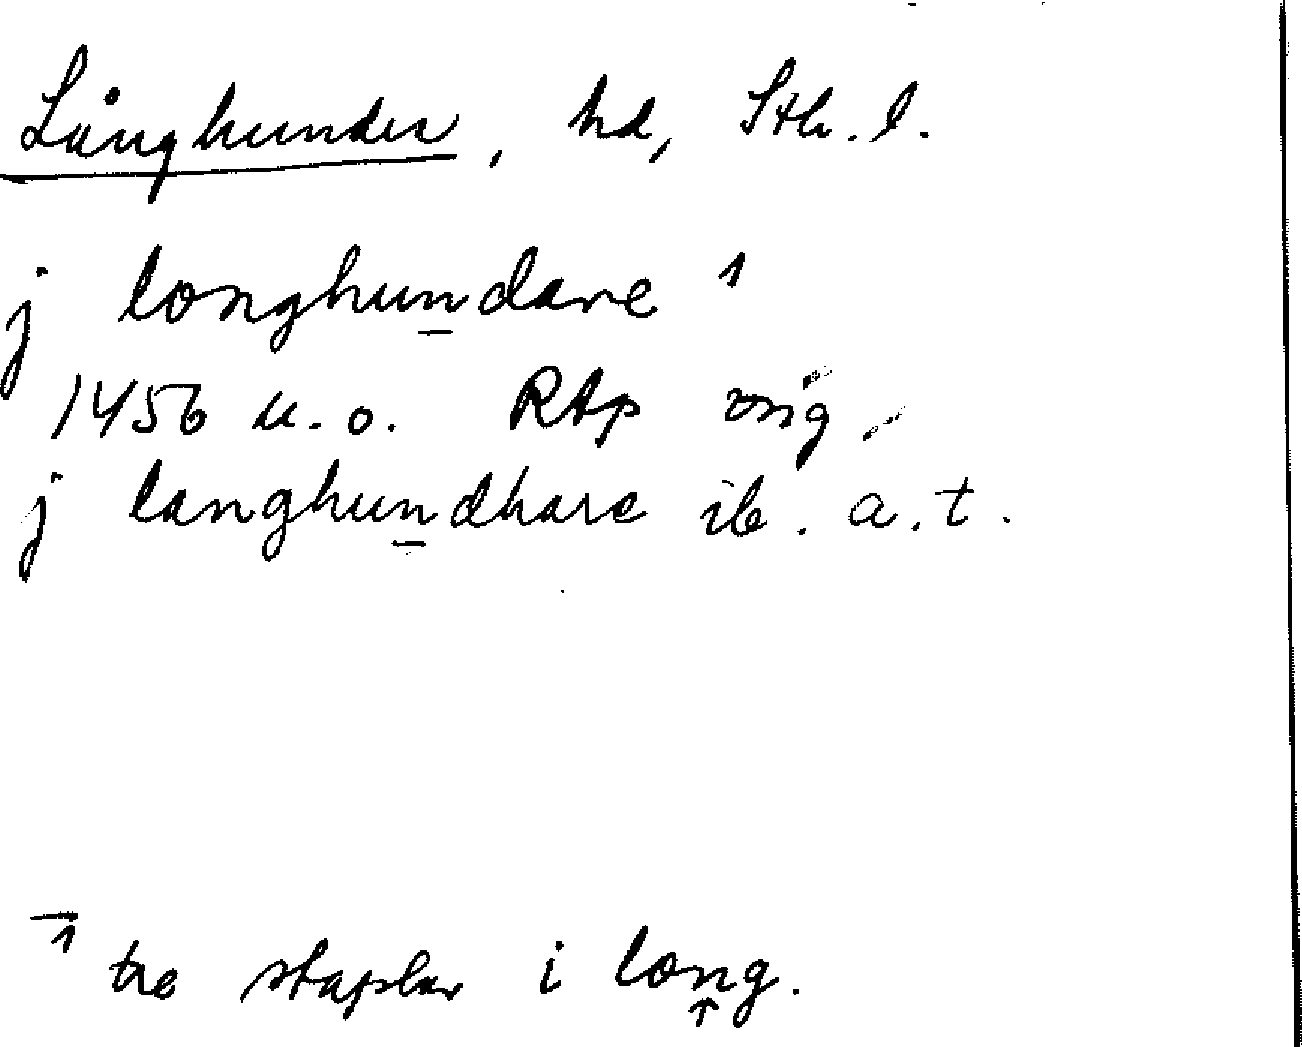 Långhundra, hd, Sth. l.
j longhundare ¹
1456 u. o. RAp orig.
j langhundhare ib. a. t.
¹ tre staplar i long.
↑